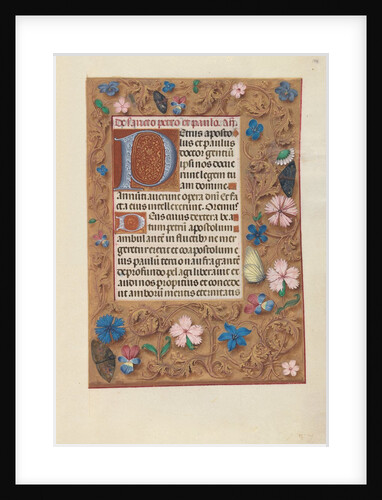 De sancto petro et paulo. Añ
Petrus aposto
lus et paulus
doctor gentiū
ipsi nos docue
runt legem tu
am domine
Annūt auerunt opera dm̄ Et fa
cta eius intellexerunt. Oremus
Deus cuius dextera bea
tum petrū apostolum
ambulantē in fluctib; ne mer
geretur erexit et coapostolum e
ius paulū tercio naufragantē
de profundo pelagi liberauit ex
audi nos propitius et concede
ut amborū meritis eternitatis